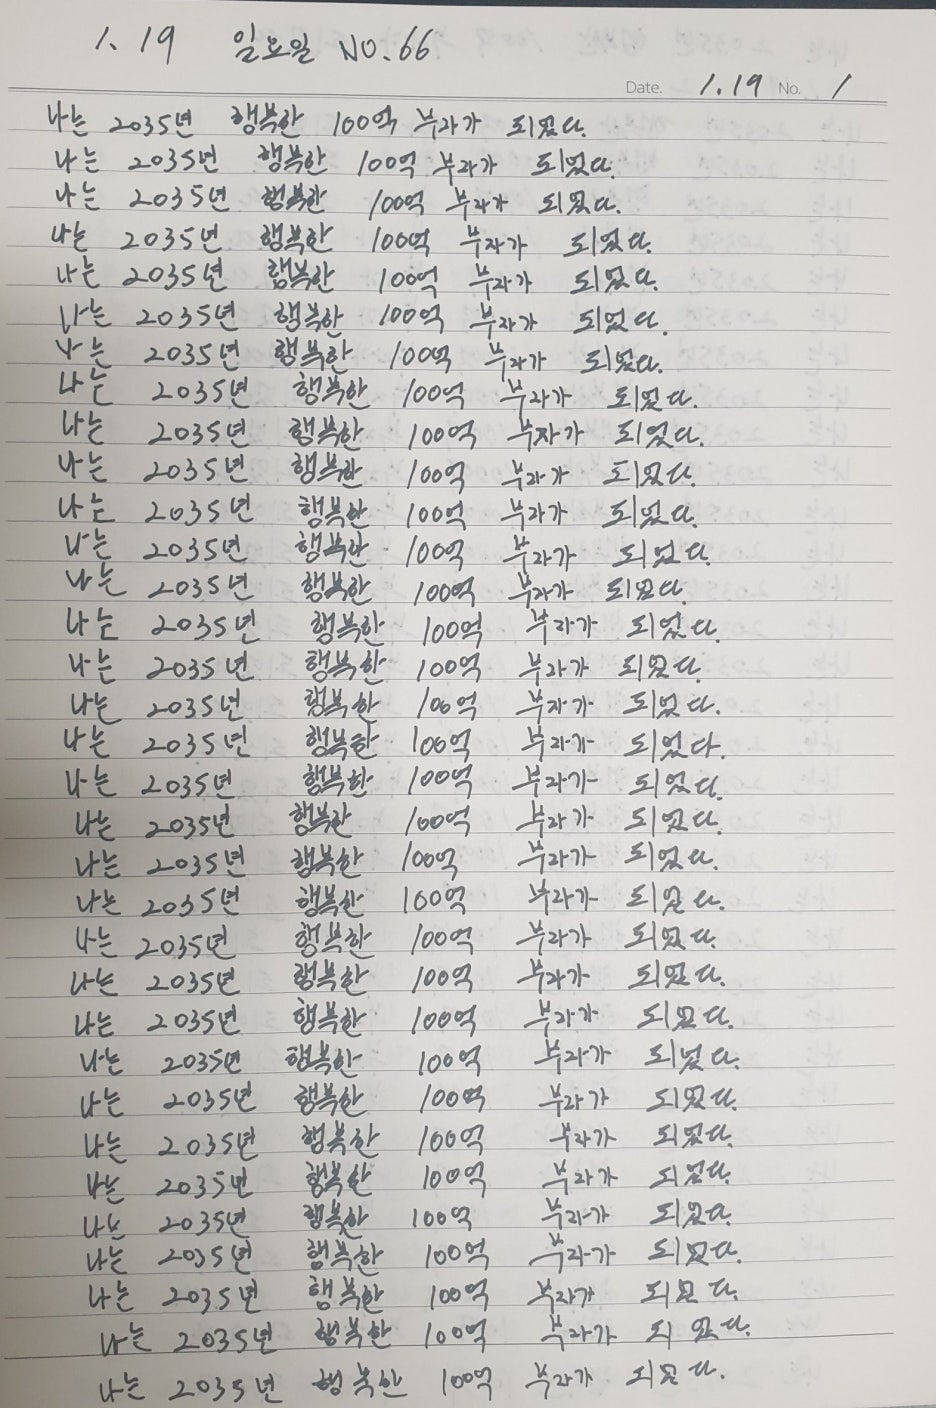 1.19 일요일 NO.66
Date. 1.19 No. 1
나는 2035년 행복한 100억 부자가 되었다.
나는 2035년 행복한 100억 부자가 되었다.
나는 2035년 행복한 100억 부자가 되었다.
나는 2035년 행복한 100억 부자가 되었다.
나는 2035년 행복한 100억 부자가 되었다.
나는 2035년 행복한 100억 부자가 되었다.
나는 2035년 행복한 100억 부자가 되었다.
나는 2035년 행복한 100억 부자가 되었다.
나는 2035년 행복한 100억 부자가 되었다.
나는 2035년 행복한 100억 부자가 되었다.
나는 2035년 행복한 100억 부자가 되었다.
나는 2035년 행복한 100억 부자가 되었다.
나는 2035년 행복한 100억 부자가 되었다.
나는 2035년 행복한 100억 부자가 되었다.
나는 2035년 행복한 100억 부자가 되었다.
나는 2035년 행복한 100억 부자가 되었다.
나는 2035년 행복한 100억 부자가 되었다.
나는 2035년 행복한 100억 부자가 되었다.
나는 2035년 행복한 100억 부자가 되었다.
나는 2035년 행복한 100억 부자가 되었다.
나는 2035년 행복한 100억 부자가 되었다.
나는 2035년 행복한 100억 부자가 되었다.
나는 2035년 행복한 100억 부자가 되었다.
나는 2035년 행복한 100억 부자가 되었다.
나는 2035년 행복한 100억 부자가 되었다.
나는 2035년 행복한 100억 부자가 되었다.
나는 2035년 행복한 100억 부자가 되었다.
나는 2035년 행복한 100억 부자가 되었다.
나는 2035년 행복한 100억 부자가 되었다.
나는 2035년 행복한 100억 부자가 되었다.
나는 2035년 행복한 100억 부자가 되었다.
나는 2035년 행복한 100억 부자가 되었다.
나는 2035년 행복한 100억 부자가 되었다.